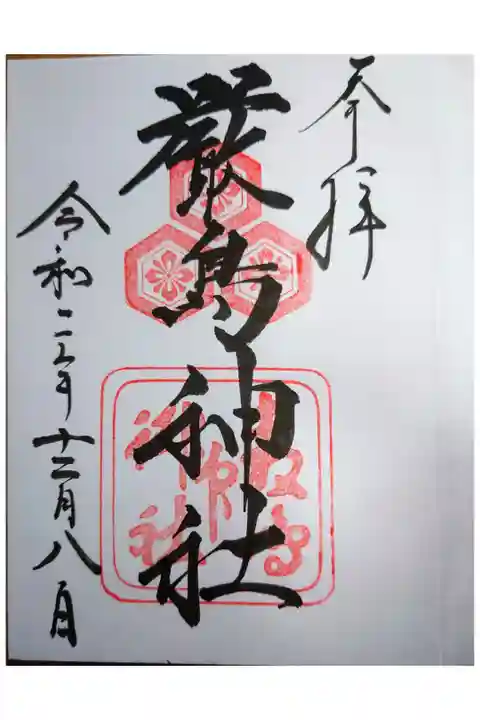 奉拝
厳島神社
令和二年十二月八日